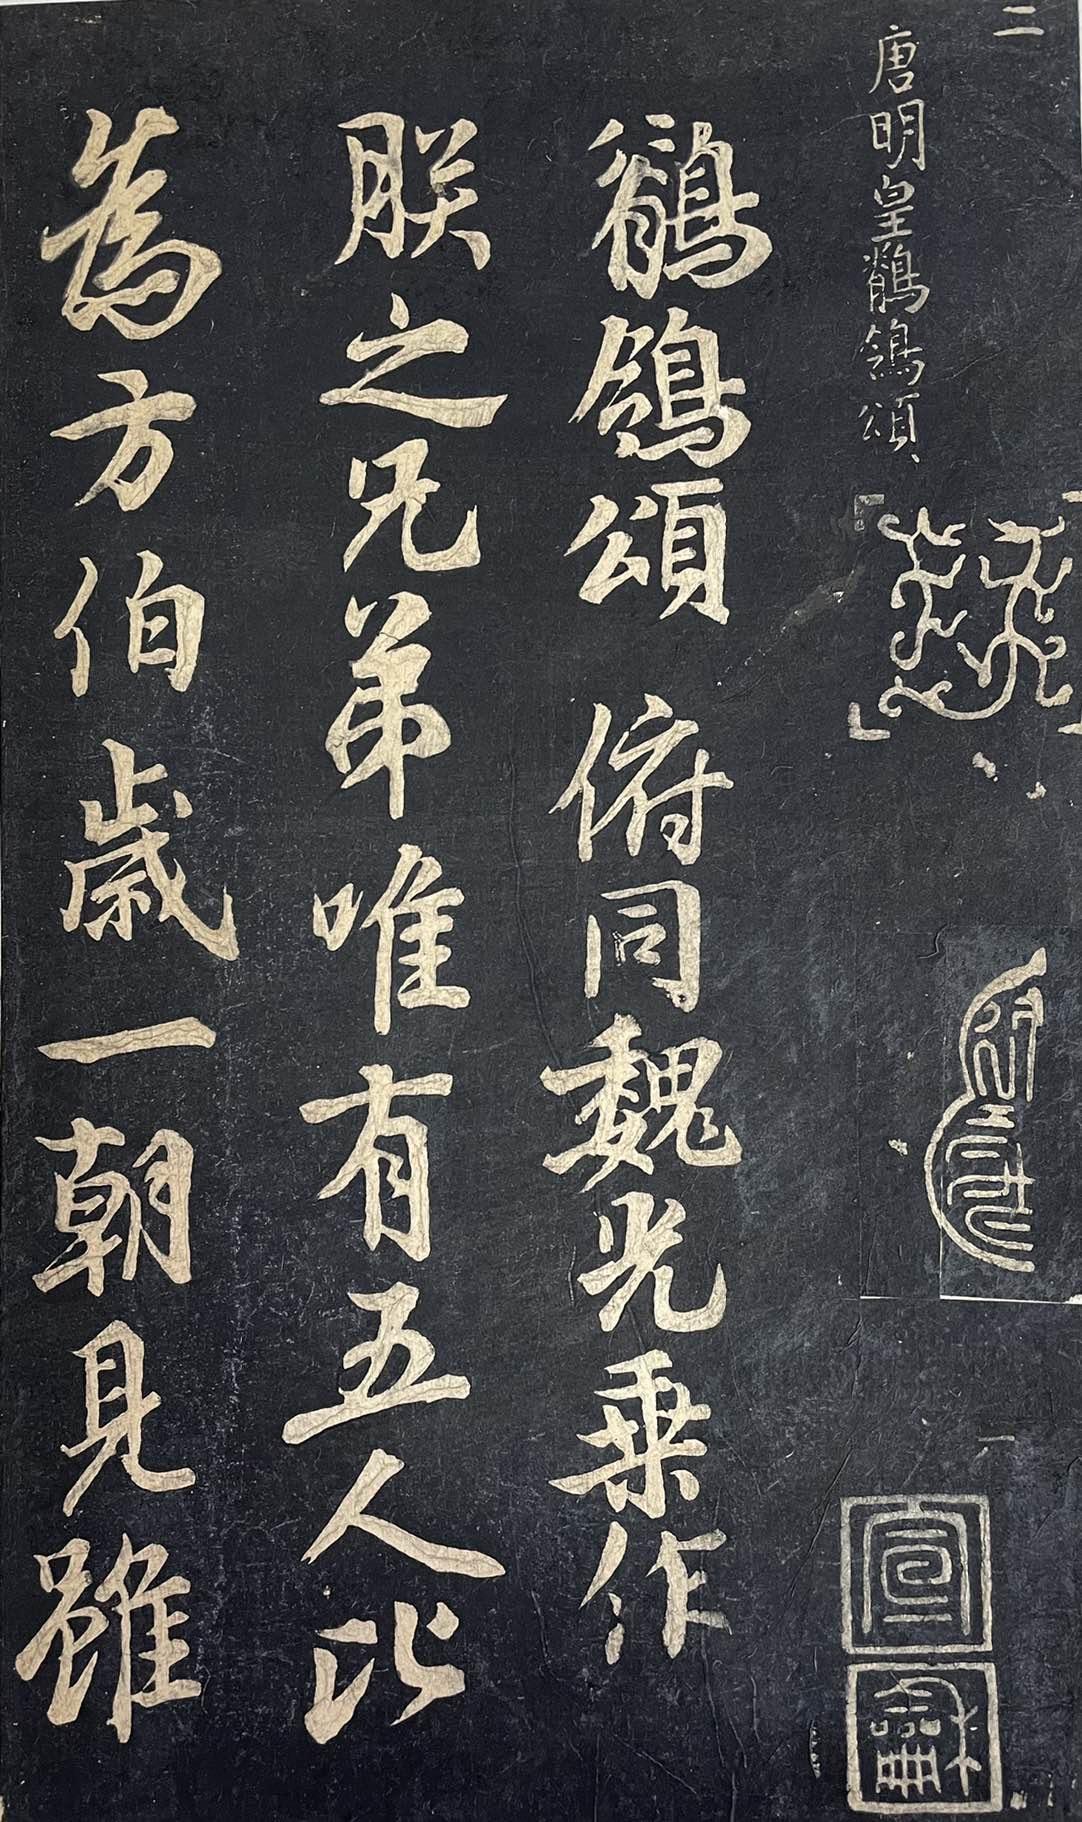 二
唐明皇鶺鴒頌
鶺鴒頌 俯同魏光乘作
朕之兄弟唯有五人比
為方伯歲一朝見雖
宣
龢